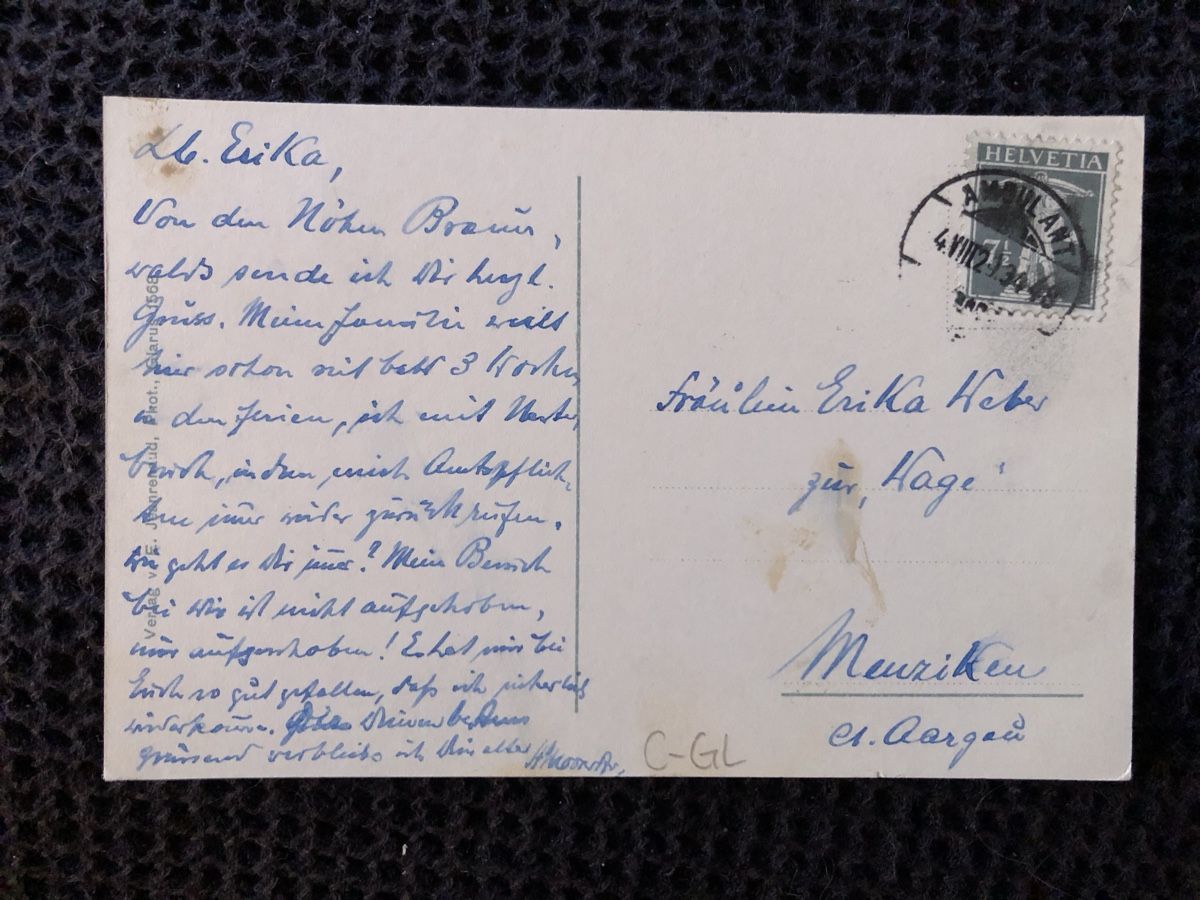 Lb. Erika,
Von den Höhen Braun-
walds sende ich Dir herzl.
Gruss. Meine Familie weilt
hier schon seit bald 3 Wochen
in den Ferien, ich mit Unter-
bruch, indem mich Amtspflich-
ten immer wieder zurückrufen.
Wie geht es Dir immer? Mein Besuch
bei Dir ist nicht aufgehoben,
nur aufgeschoben! Es hat mir bei
Euch so gut gefallen, dass ich sicherlich
wiederkomme. Deinen bestens
grüssend verbleibe ich Dein alter
Verlag v. E. Phot., Glarus 1568
HELVETIA
7½
AMBULANT
4.VIII.2
Fräulein Erika Weber
zur „Wage"
Menziken
Ct. Aargau
C-GL